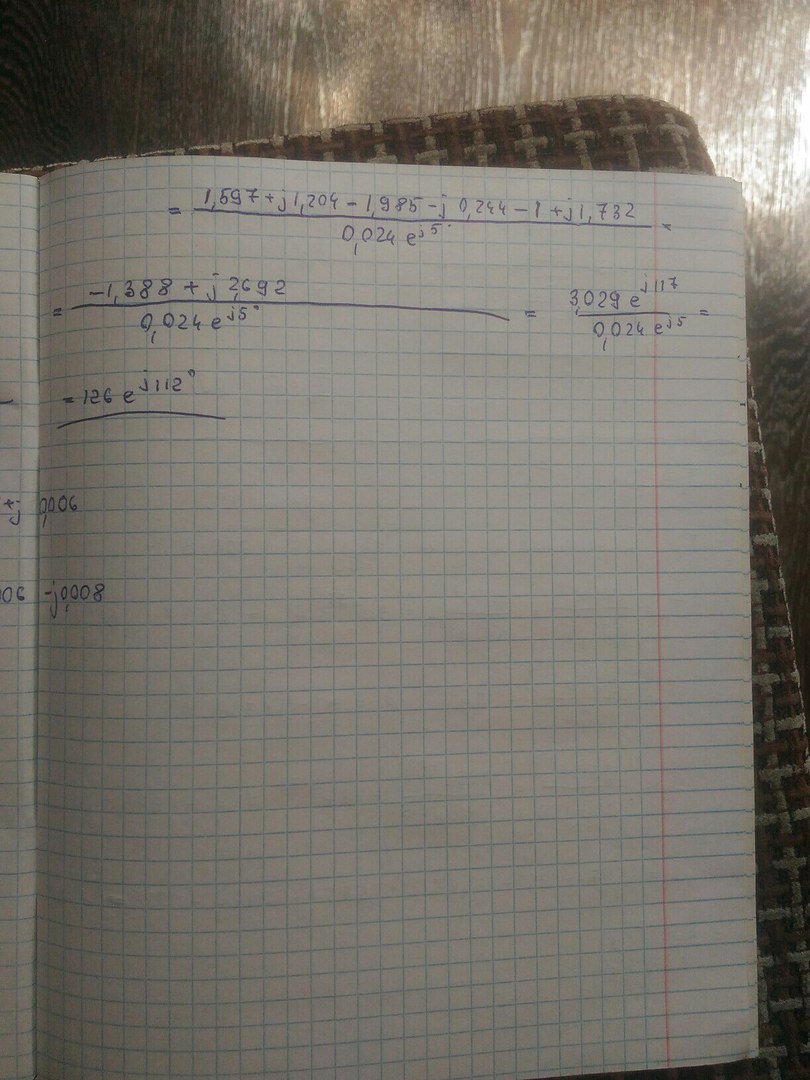 = (1,597 + j1,204 - 1,985 - j 0,244 - 1 + j1,732) / (0,024 e^(j5°)) =
= (-1,388 + j 2,692) / (0,024 e^(j5°)) = (3,029 e^(j117)) / (0,024 e^(j5)) =
= 126 e^(j112°)
+j 0,006
06 -j0,008